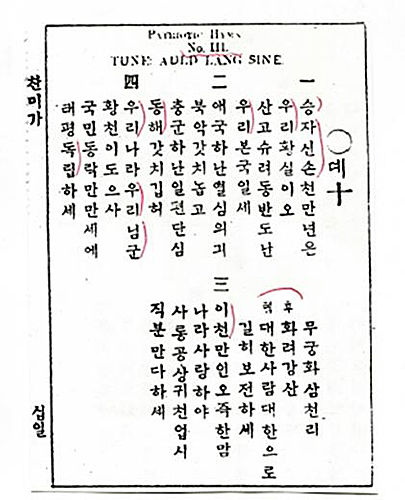 PATRIOTIC HYMN
No. III.
TUNE: AULD LANG SINE.
◯뎨十
一
승자신손천만년은
우리황실이오
산고슈려동반도난
우리본국일세
후렴
무궁화삼천리
화려강산
대한사람대한으로
길히보전하세
二
애국하난열심의긔
북악갓치놉고
충군하난일편단심
동해갓치깁허
三
이천만인오즉한맘
나라사랑하야
사롱공상귀천업시
직분만다하세
四
우리나라우리님군
황천이도으사
국민동락만만세에
태평독립하세
찬미가
십일